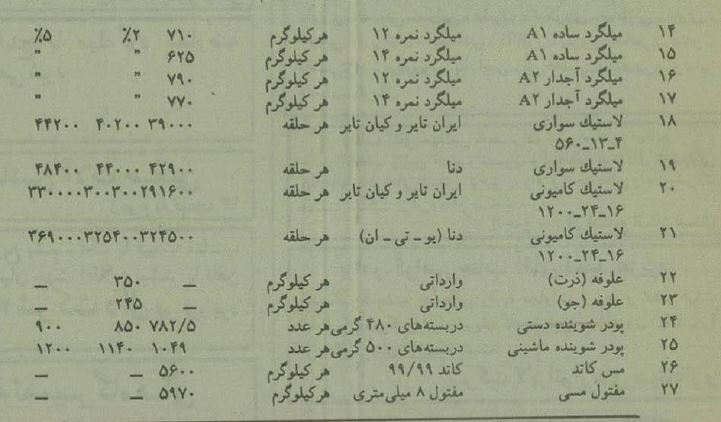 ۱۴ میلگرد ساده A۱ میلگرد نمره ۱۲ هر کیلوگرم ۷۱۰ ۲٪ ۵٪
۱۵ میلگرد ساده A۱ میلگرد نمره ۱۴ هر کیلوگرم ۶۲۵ " "
۱۶ میلگرد آجدار A۲ میلگرد نمره ۱۲ هر کیلوگرم ۷۹۰ " "
۱۷ میلگرد آجدار A۲ میلگرد نمره ۱۴ هر کیلوگرم ۷۷۰ " "
۱۸ لاستیك سواری ایران تایر و کیان تایر هر حلقه ۳۹۰۰۰ ۴۰۲۰۰ ۴۴۲۰۰
۵۶۰_۱۳_۴
۱۹ لاستیك سواری دنا هر حلقه ۴۲۹۰۰ ۴۴۰۰۰ ۴۸۴۰۰
۲۰ لاستیك کامیونی ایران تایر و کیان تایر هر حلقه ۲۹۱۶۰۰ ۳۰۰۳۰۰ ۳۳۰۰۰۰
۱۲۰۰_۲۴_۱۶
۲۱ لاستیك کامیونی دنا (یو - تی - ان) هر حلقه ۳۲۴۵۰۰ ۳۲۵۴۰۰ ۳۶۹۰۰۰
۱۲۰۰_۲۴_۱۶
۲۲ علوفه (ذرت) وارداتی هر کیلوگرم _ ۳۵۰ _
۲۳ علوفه (جو) وارداتی هر کیلوگرم _ ۲۴۵ _
۲۴ پودر شوینده دستی دربسته‌های ۴۸۰ گرمی هر عدد ۷۸۲/۵ ۸۵۰ ۹۰۰
۲۵ پودر شوینده ماشینی دربسته‌های ۵۰۰ گرمی هر عدد ۱۰۴۹ ۱۱۴۰ ۱۲۰۰
۲۶ مس کاتد کاتد ۹۹/۹۹ هر کیلوگرم ۵۶۰۰ _ _
۲۷ مفتول مسی مفتول ۸ میلی‌متری هر کیلوگرم ۵۹۷۰ _ _